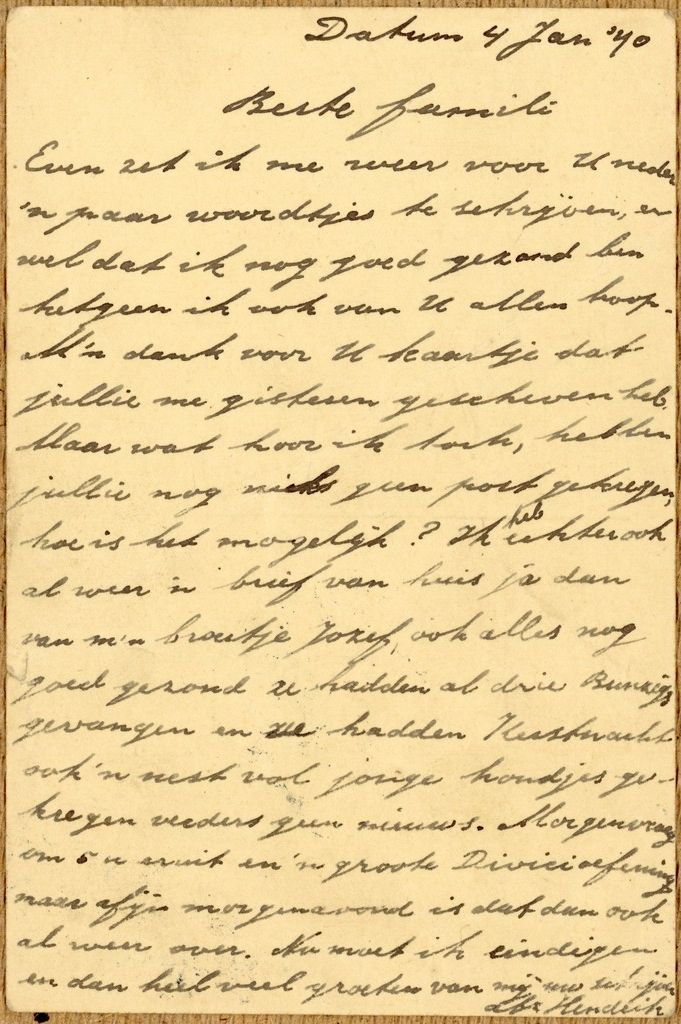 Datum 4 Jan '40
Beste famili
Even zet ik me weer voor U neder
'n paar woordtjes te schrijven, en
wel dat ik nog goed gezond ben
hetgeen ik ook van U allen hoop.
M'n dank voor U kaartje dat
jullie me gisteren gescheven heb.
Maar wat hoor ik toch, hebben
jullie nog niets geen post gekregen,
hoe is het mogelijk? Ik heb echter ook
al weer 'n brief van huis ja dan
van m'n broertje Jozef, ook alles nog
goed gezond ze hadden al drie Bunzigs
gevangen en ze hadden Kerstnacht
ook 'n nest vol jonge hondjes ge-
kregen veerders geen nieuws. Morgenvroeg
om 5 u eruit en 'n groote Divicieoefening
maar afijn morgenavond is dat dan ook
al weer over. Nu moet ik eindigen
en dan heel veel groeten van mij uw
Hendrik